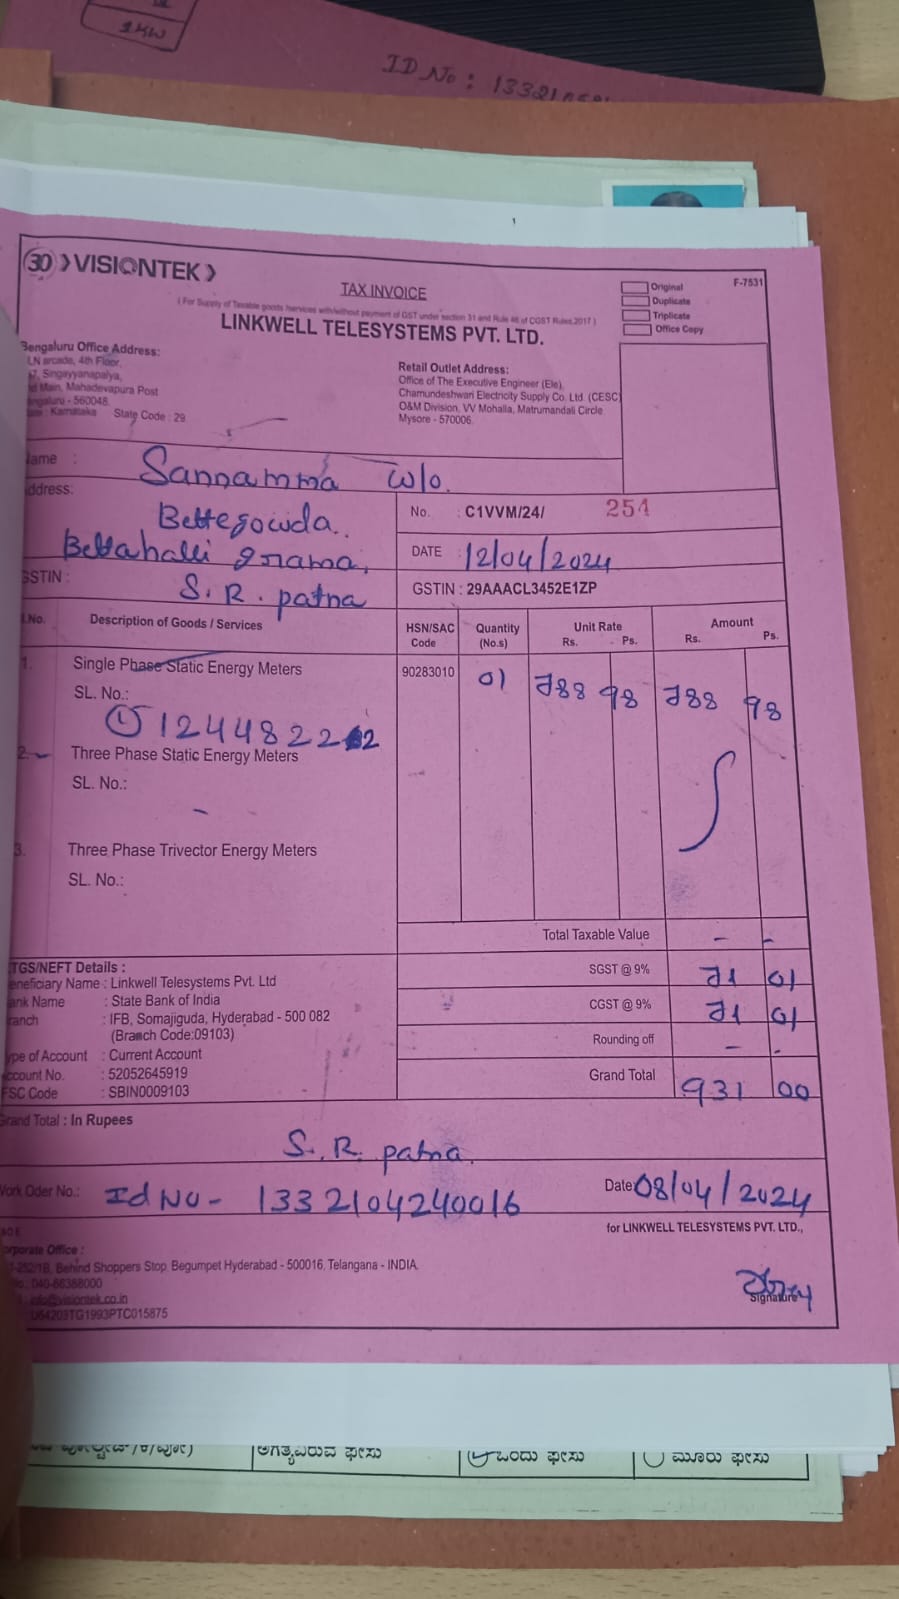 1KW
ID No: 13321
30 VISIONTEK
TAX INVOICE
F-7531
Original
Duplicate
Triplicate
Office Copy
( For Supply of Taxable goods /services with/without payment of GST under section 31 and Rule 46 of CGST Rules,2017 )
LINKWELL TELESYSTEMS PVT. LTD.
Bengaluru Office Address:
LN arcade, 4th Floor,
Singayyanapalya,
Main, Mahadevapura Post
- 560048.
Karnataka State Code : 29
Retail Outlet Address:
Office of The Executive Engineer (Ele),
Chamundeshwari Electricity Supply Co. Ltd. (CESC
O&M Division, VV Mohalla, Matrumandali Circle
Mysore - 570006.
ame : Sannamma w/o.
ddress: Bettegowda..
Bettahalli grama,
GSTIN : S. R. patna
No. : C1VVM/24/ 254
DATE : 12/04/2024
GSTIN : 29AAACL3452E1ZP
.No. Description of Goods / Services HSN/SAC Code Quantity (No.s) Unit Rate Rs. Ps. Amount Rs. Ps.
1. Single Phase Static Energy Meters 90283010 01 788 98 788 98
SL. No.:
① 1244822
2. Three Phase Static Energy Meters
SL. No.:
-
3. Three Phase Trivector Energy Meters
SL. No.:
Total Taxable Value - -
TGS/NEFT Details :
eneficiary Name : Linkwell Telesystems Pvt. Ltd
ank Name : State Bank of India
ranch : IFB, Somajiguda, Hyderabad - 500 082
(Branch Code:09103)
ype of Account : Current Account
ccount No. : 52052645919
FSC Code : SBIN0009103
SGST @ 9% 71 01
CGST @ 9% 71 01
Rounding off - -
Grand Total 931 00
Grand Total : In Rupees
S. R. patna.
Work Oder No.: Id No - 1332104240016 Date 08/04/2024
for LINKWELL TELESYSTEMS PVT. LTD.,
orporate Office :
Behind Shoppers Stop, Begumpet Hyderabad - 500016, Telangana - INDIA.
040-66388000
info@visiontek.co.in
U64203TG1993PTC015875
Signature
ಅಗತ್ಯವಿರುವ ಫೇಸು ಒಂದು ಫೇಸು ಮೂರು ಫೇಸು